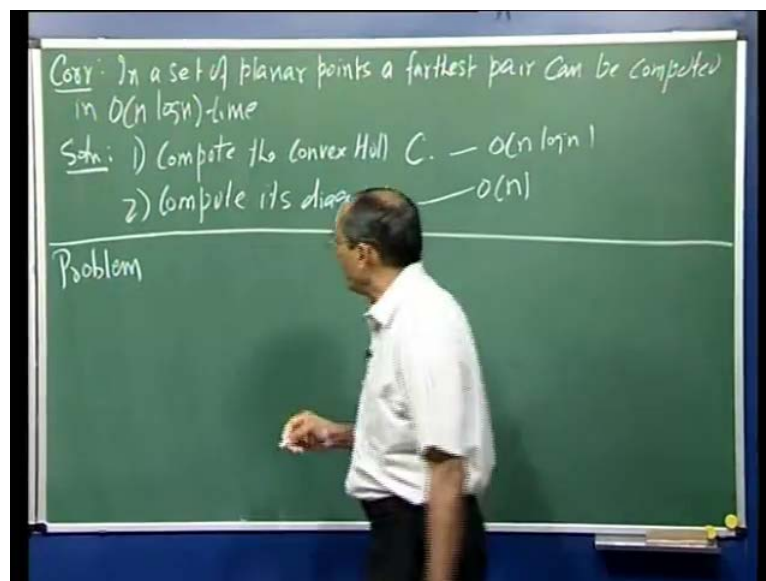 Corr: In a set of planar points a farthest pair can be computed
in O(n logn)-time
Soln: 1) Compute the Convex Hull C. — O(n logn)
2) Compute its — O(n)
Problem